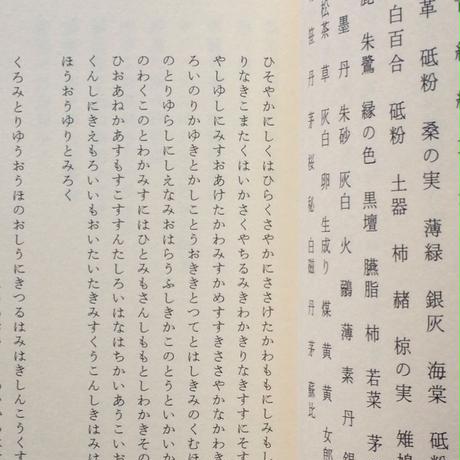 革　砥粉　桑の実　薄緑　銀灰　海棠　砥粉
白百合　砥粉　土器　柿　赭　椋の実　雉鳩
朱鷺　縁の色　黒壇　臙脂　柿　若菜　茅
墨　丹　朱砂　灰白　火　鷊　薄　素　丹　銀
松茶　草　灰白　卵　生成り　煤　黄　黄　女郎
笹　丹　茅　桜　秘　白磁　丹　茅　蘇比
ひそやかにしくはひらくさやかにささけたかわももにしみもし
りなきこまたくはいかさくやちるみきわかきりなきすすにそす
やしゆしにみすおあけたかわみすかめすすきささかなかわ
ろいのりかゆきとかしことうおききとつてとはしきみのくむほ
のとりゆらしにしえなみおはらうふしきかこのとうといかいか
のわくこのとわかみすにはひとみもさんしももとしわかきその
ひおあねかあすもすこすすんたしろいはなはちかいあうこいお
くんしにきえもろいいもおいたいたきみすくうこんしきはみは
ほうおうゆりとみろく
くろみとりゆうおうほのおしうにきつるはみはきしんこうくす